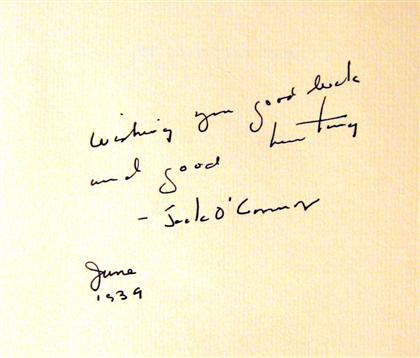 Wishing you good luck
and good hunting
- Jack O'Connor
June
1939